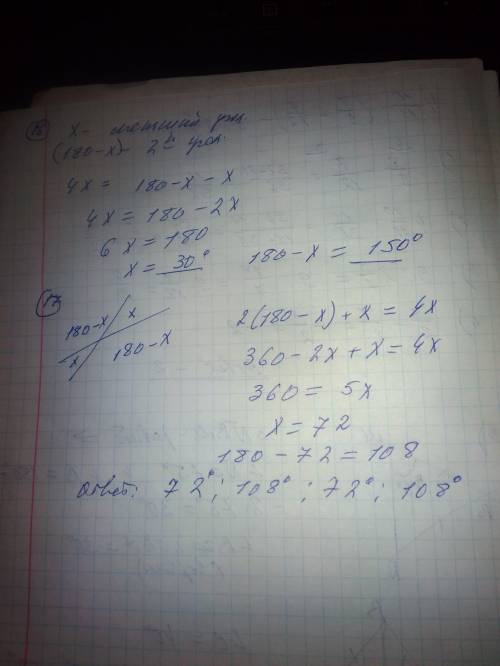 16 x - меньший угол
(180-x) - 2й угол.
4x = 180-x-x
4x = 180-2x
6x = 180
x = 30°
180-x = 150°
17
180-x x
x 180-x
2(180-x)+x = 4x
360-2x+x = 4x
360 = 5x
x = 72
180-72 = 108
Ответ: 72°; 108°; 72°; 108°